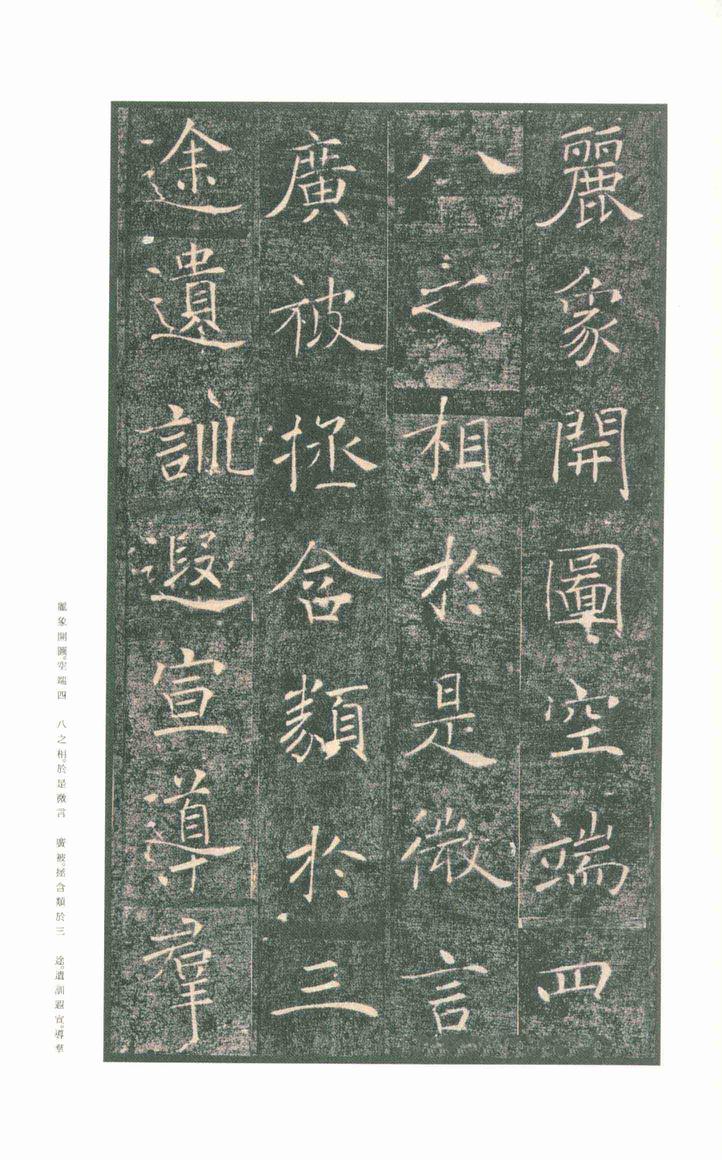 麗象開圖空端四
八之相於是微言
廣被拯含類於三
途遺訓遐宣導羣
麗象開圖。空端四　八之相。於是微言　廣被。拯含類於三　途。遺訓遐宣。導羣